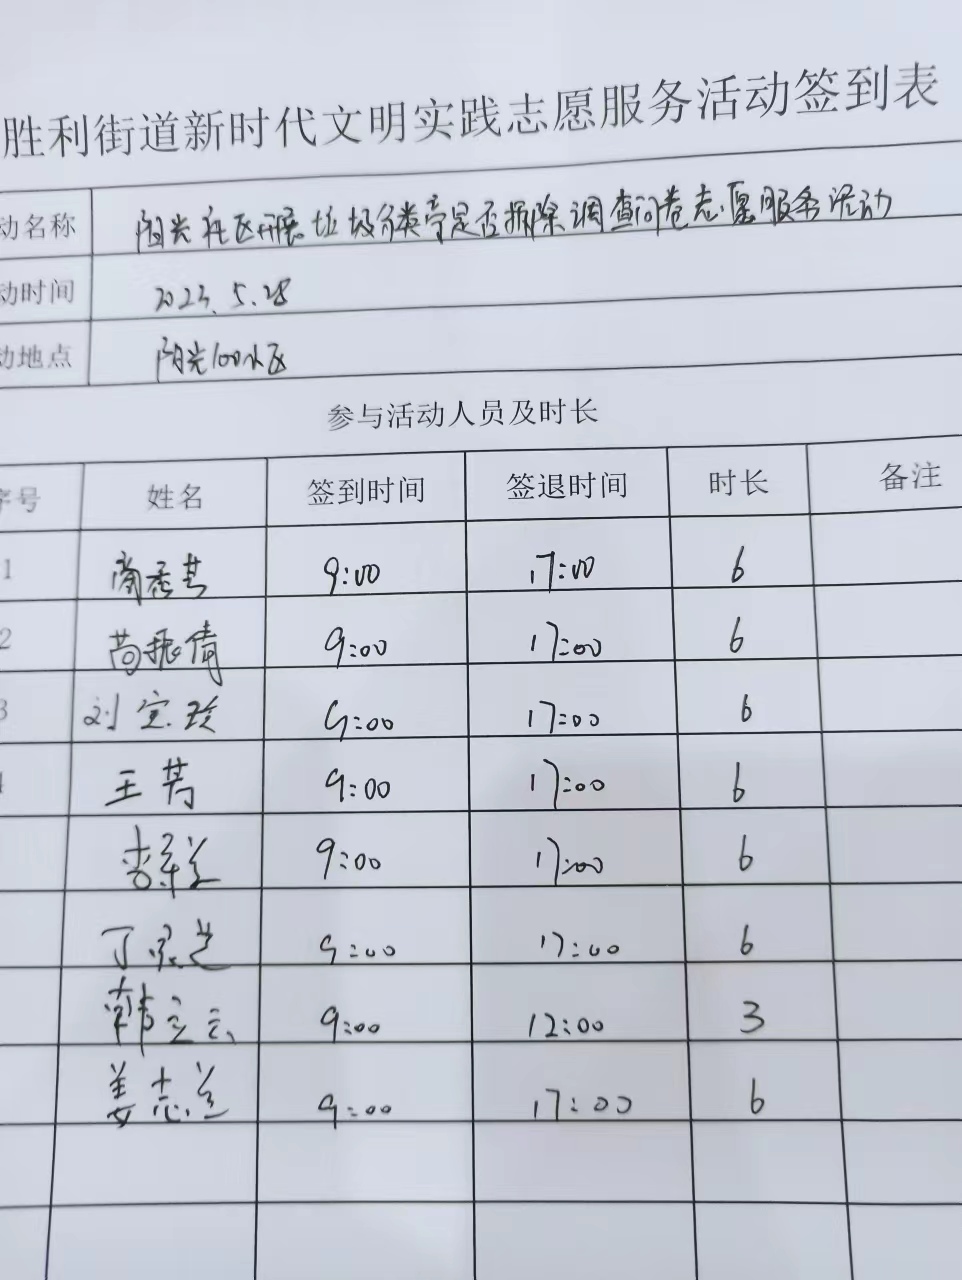 胜利街道新时代文明实践志愿服务活动签到表
动名称 阳光社区开展垃圾分类亭是否拆除调查问卷志愿服务活动
动时间 2023.5.28
动地点 阳光100小区
参与活动人员及时长
序号 姓名 签到时间 签退时间 时长 备注
1 9:00 17:00 6
2 苘振倩 9:00 17:00 6
3 刘宝玲 9:00 17:00 6
4 王苒 9:00 17:00 6
李翠兰 9:00 17:00 6
丁爱兰 9:00 17:00 6
韩立云 9:00 12:00 3
姜志兰 9:00 17:00 6